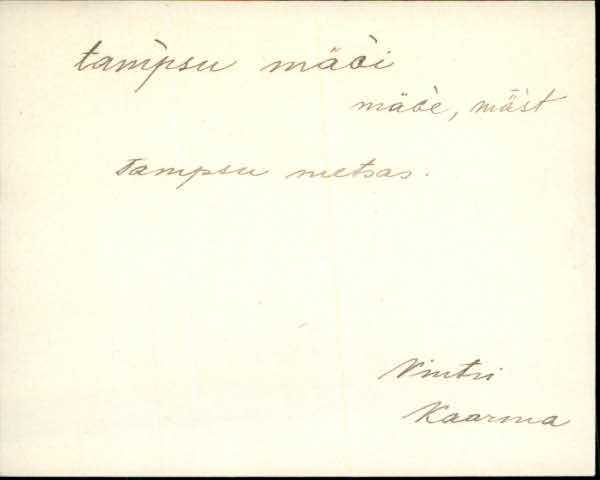 tam̀psu mäòi
mäòè, mäst
Tampsu metsas.
Vintri
Kaarma